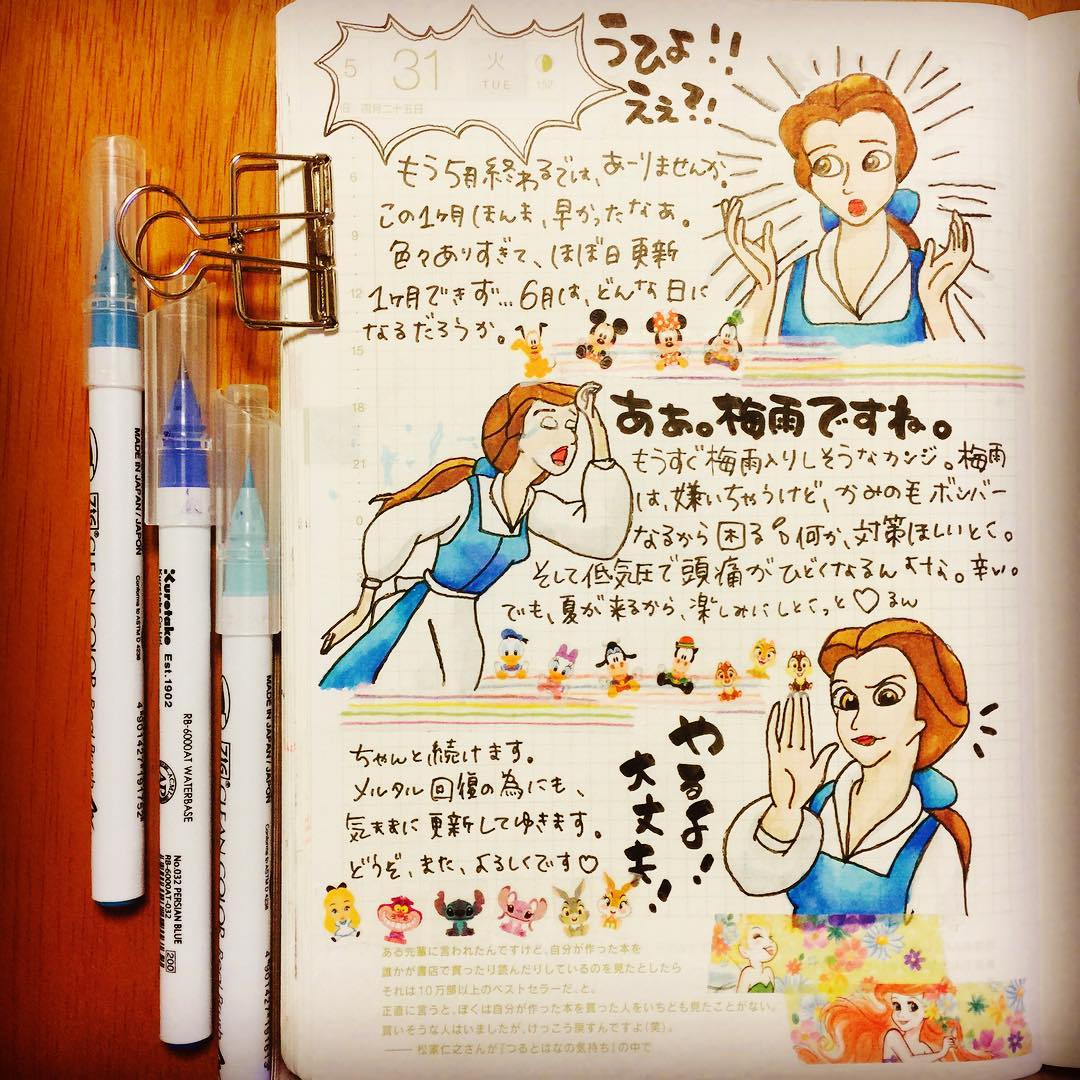 5
31
火
TUE
152
四月二十五日
うひょ!!
ええ?!
もう5月終わるでは、あーりませんか。
この1ヶ月ほんま、早かったなぁ。
色々ありすぎて、ほぼ日更新
1ヶ月できず…6月は、どんな日に
なるだろうか。
6
9
12
15
18
21
0
ああ。梅雨ですね。
もうすぐ梅雨入りしそうなカンジ。梅雨
は、嫌いちゃうけど、かみの毛ボンバー
なるから困る 何か、対策ほしいとこ。
そして低気圧で頭痛がひどくなるんよな。辛い。
でも、夏が来るから、楽しみにしとくっと♡るん
やるよ!
大丈夫!
ちゃんと続けます。
メルタル回復の為にも、
気ままに更新してゆきます。
どうぞ、また、よろしくです♡
ある先輩に言われたんですけど、自分が作った本を
誰かが書店で買ったり読んだりしているのを見たとしたら
それは10万部以上のベストセラーだ。と。
正直に言うと、ぼくは自分が作った本を買った人をいちども見たことがない。
買いそうな人はいましたが、けっこう戻すんですよ(笑)。
―― 松家仁之さんが『つるとはなの気持ち』の中で
MADE IN JAPAN/JAPON
Conforms to ASTM D 4236
ZIG CLEAN COLOR Real Brush
4 901427 191752
Kuretake
Kuretake Co., Ltd.
Est.1902
RB-6000AT WATERBASE
AP
No.032 PERSIAN BLUE
RB-6000AT-032
200
MADE IN JAPAN/JAPON
ZIG CLEAN COLOR Real